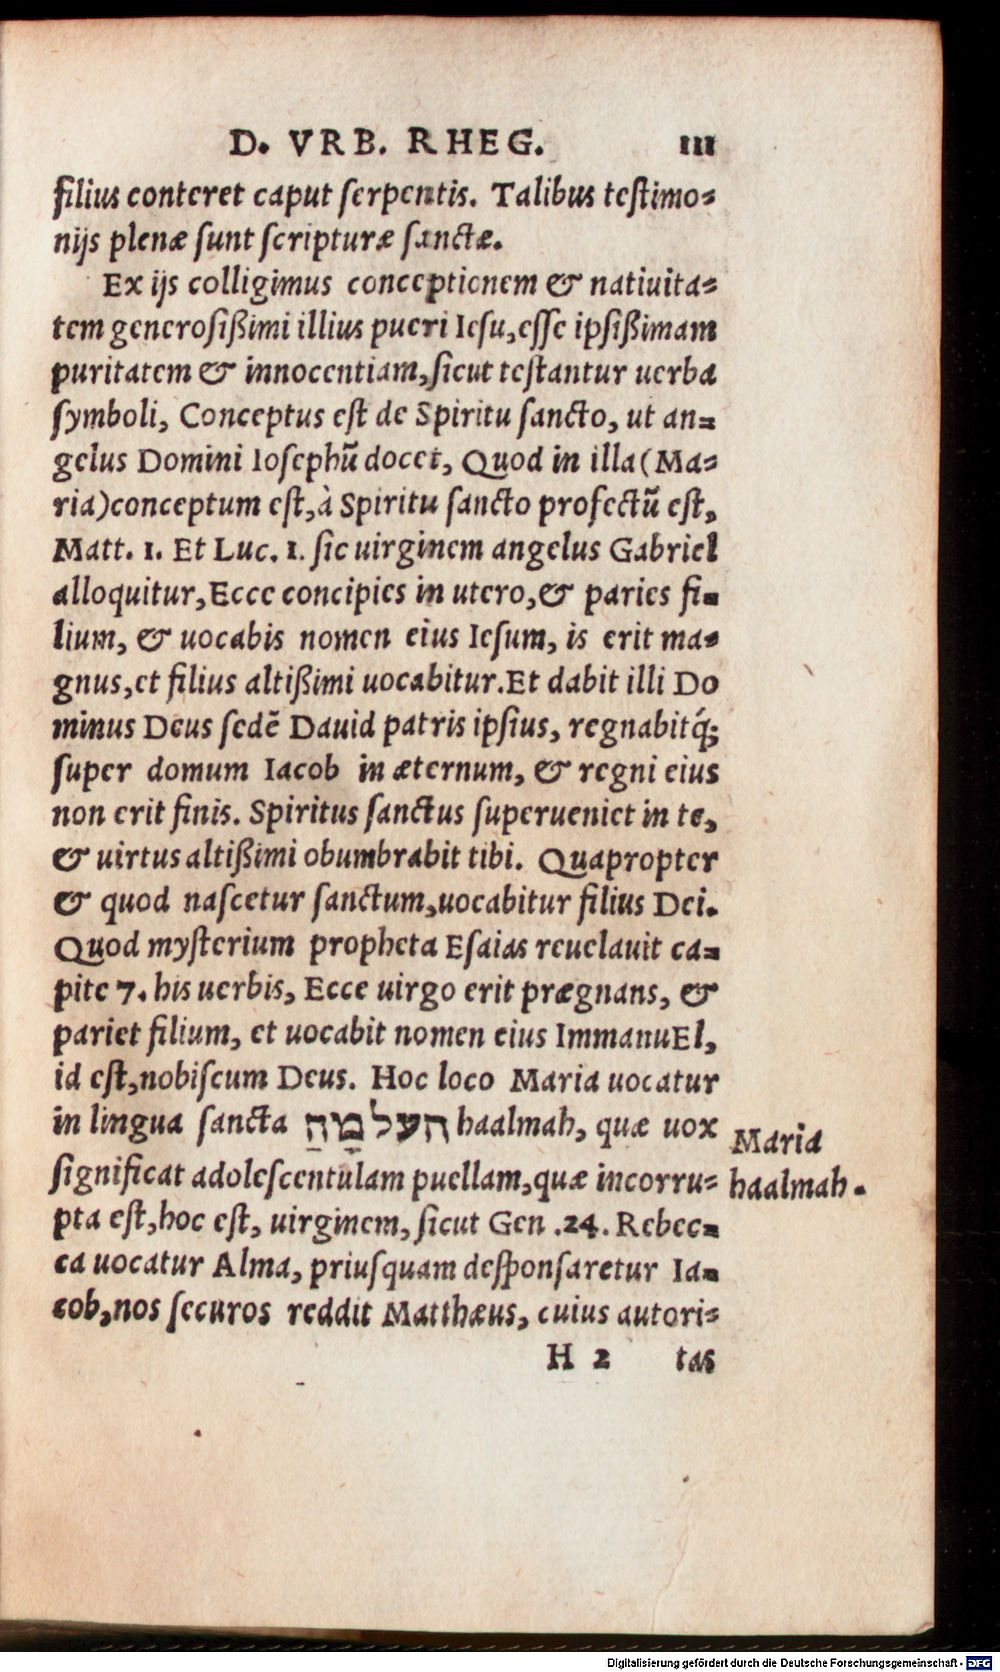 D. VRB. RHEG. III
filius conteret caput ſerpentis. Talibus teſtimo-
nijs plenæ ſunt ſcripturæ ſanctæ.
Ex ijs colligimus conceptionem & natiuita-
tem generoſißimi illius pueri Ieſu, eſſe ipſißimam
puritatem & innocentiam, ſicut teſtantur uerba
ſymboli, Conceptus eſt de Spiritu ſancto, ut an-
gelus Domini Ioſephũ docet, Quod in illa (Ma-
ria) conceptum eſt, à Spiritu ſancto profectũ eſt,
Matt. 1. Et Luc. 1. ſic uirginem angelus Gabriel
alloquitur, Ecce concipies in utero, & paries fi-
lium, & uocabis nomen eius Ieſum, is erit ma-
gnus, et filius altißimi uocabitur. Et dabit illi Do
minus Deus ſedẽ Dauid patris ipſius, regnabitq́;
ſuper domum Iacob in æternum, & regni eius
non erit finis. Spiritus ſanctus ſuperueniet in te,
& uirtus altißimi obumbrabit tibi. Quapropter
& quod naſcetur ſanctum, uocabitur filius Dei.
Quod myſterium propheta Eſaias reuelauit ca-
pite 7. his uerbis, Ecce uirgo erit prægnans, &
pariet filium, et uocabit nomen eius ImmanuEl,
id eſt, nobiſcum Deus. Hoc loco Maria uocatur
in lingua ſancta הַעלמָה haalmah, quæ uox
ſignificat adoleſcentulam puellam, quæ incorru-
pta eſt, hoc eſt, uirginem, ſicut Gen .24. Rebec-
ca uocatur Alma, priuſquam deſponſaretur Ia-
cob, nos ſecuros reddit Matthæus, cuius autori-
Maria
haalmah.
H 2 tas
Digitalisierung gefördert durch die Deutsche Forschungsgemeinschaft - DFG